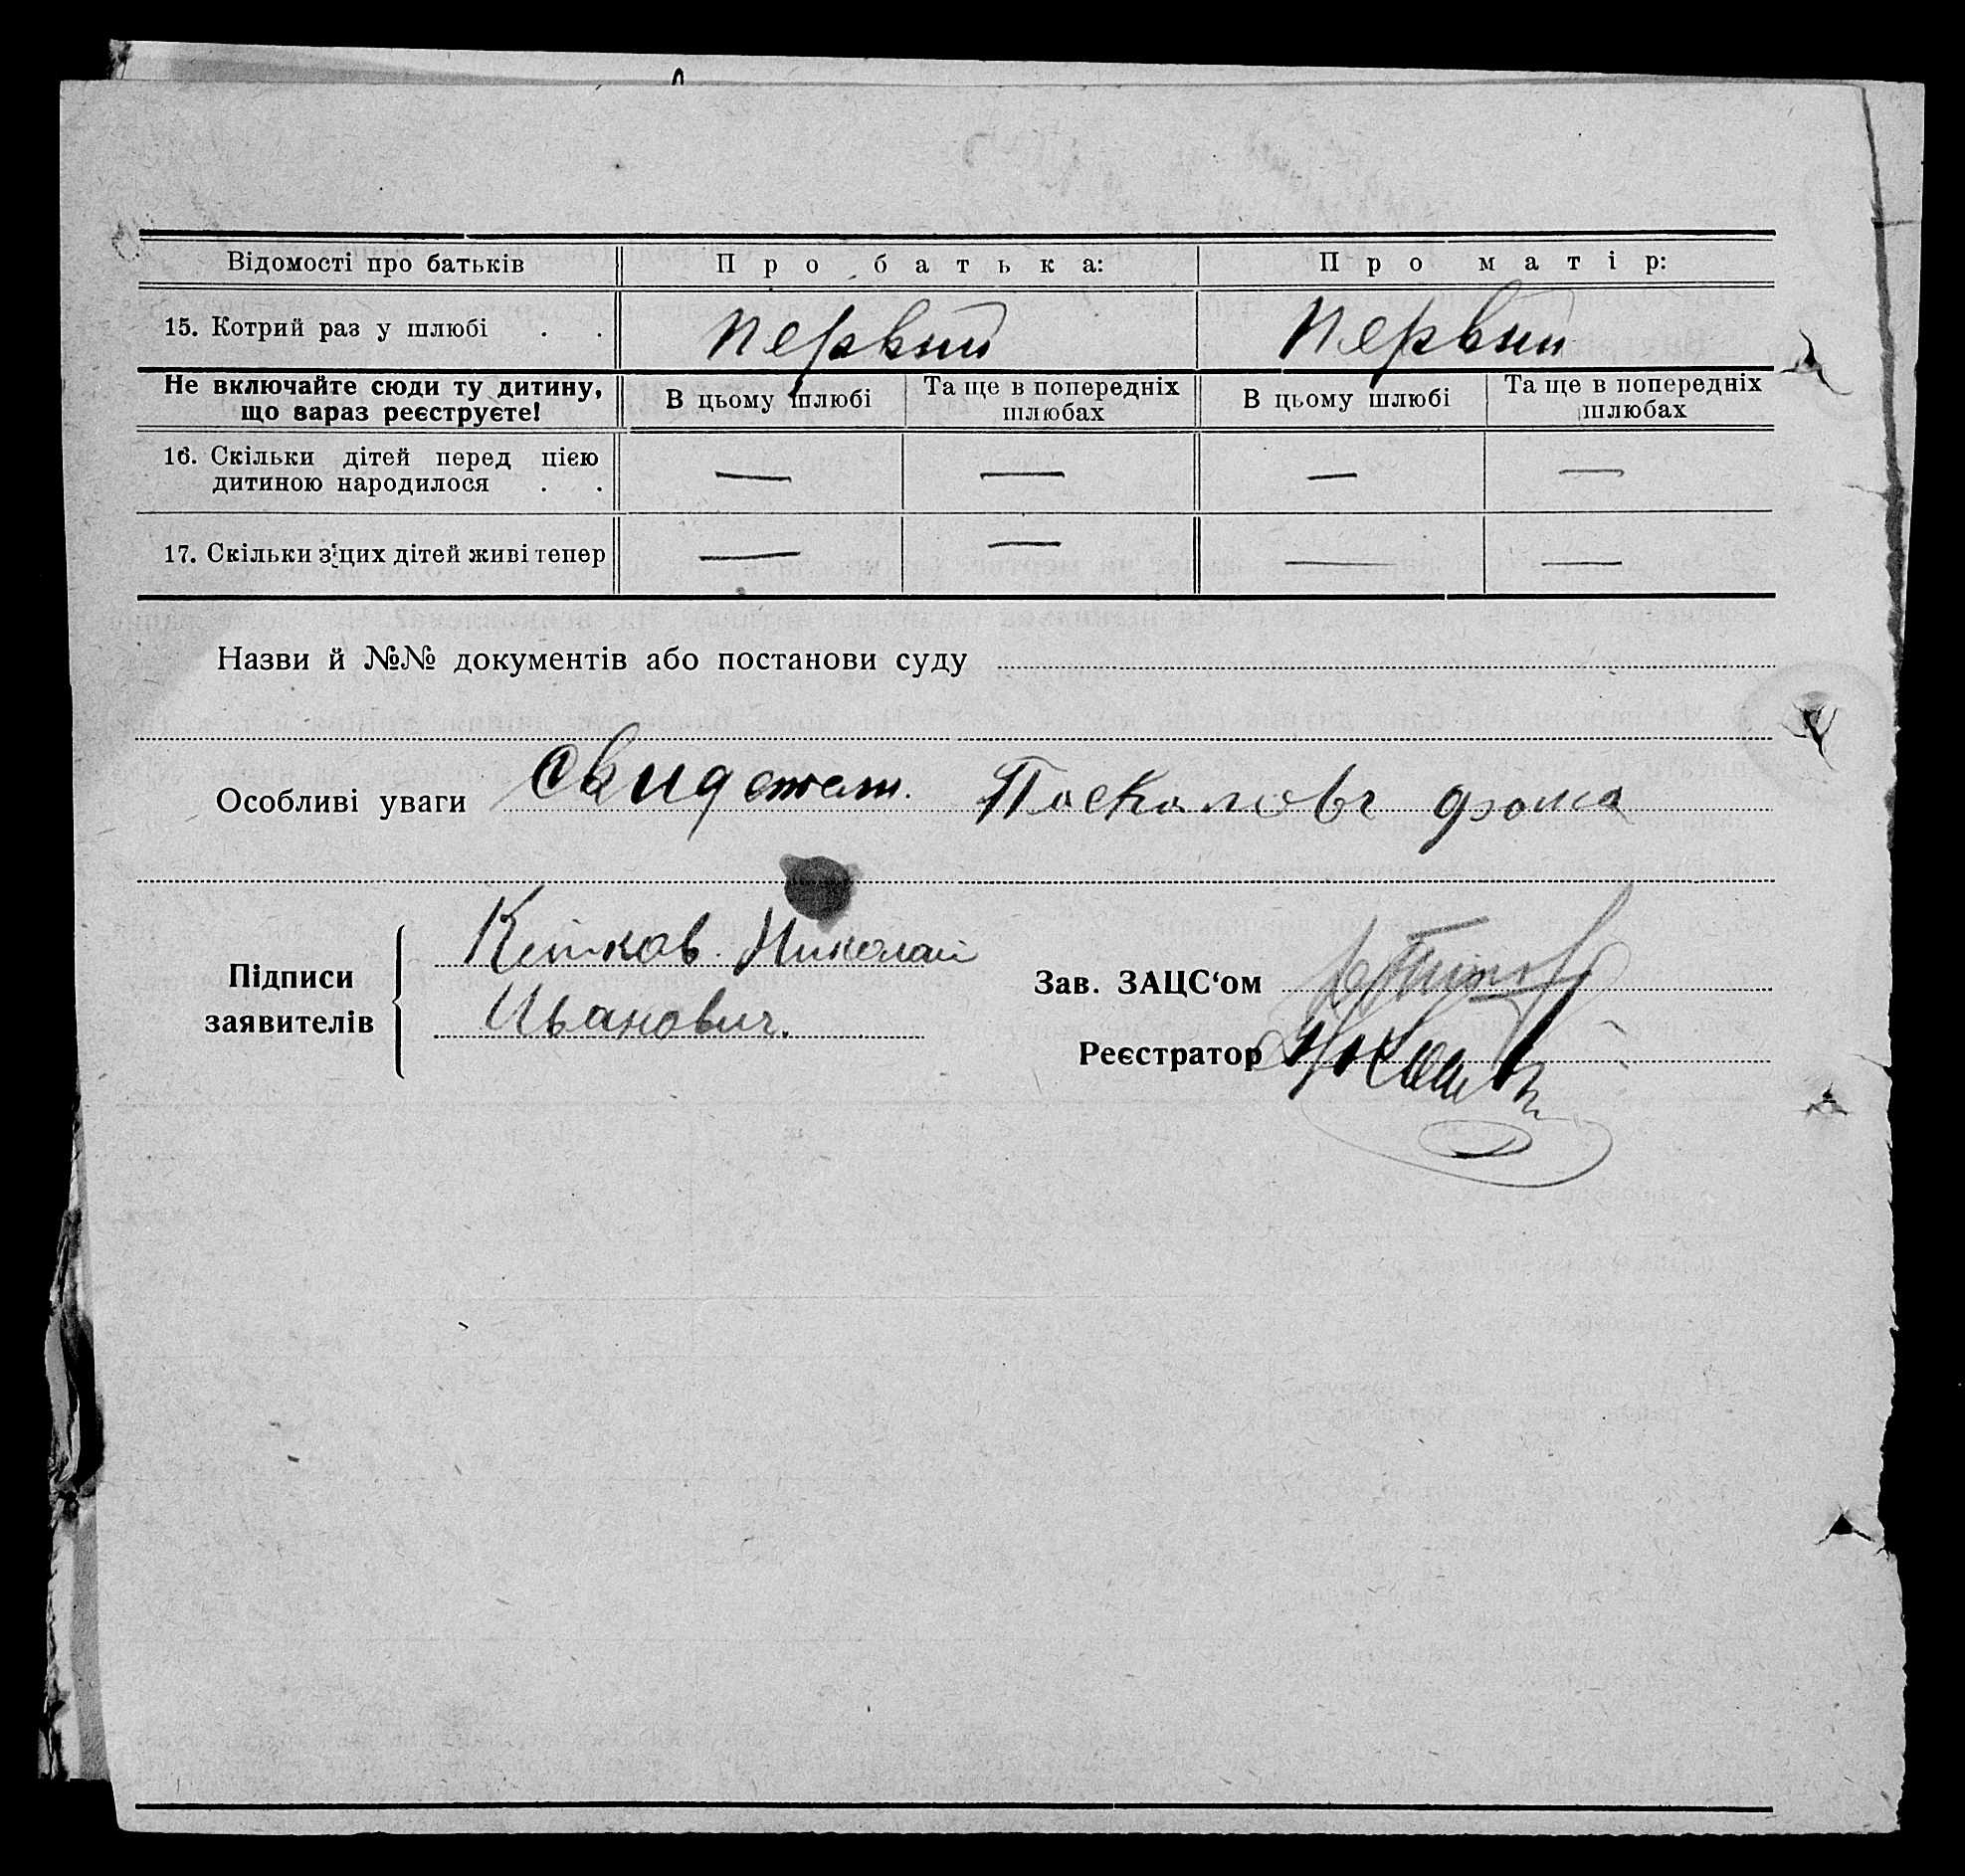 Відомості про батьків Про батька: Про матір:
15. Котрий раз у шлюбі . . первий первий
Не включайте сюди ту дитину, що вараз реєструєте! В цьому шлюбі Та ще в попередніх шлюбах В цьому шлюбі Та ще в попередніх шлюбах
16. Скільки дітей перед цією дитиною народилося . . — — — —
17. Скільки з цих дітей живі тепер — — — —
Назви й №№ документів або постанови суду
Особливі уваги свидетели. фома
Підписи заявителів
Николай
Иванович.
Зав. ЗАЦС‘ом
Реєстратор